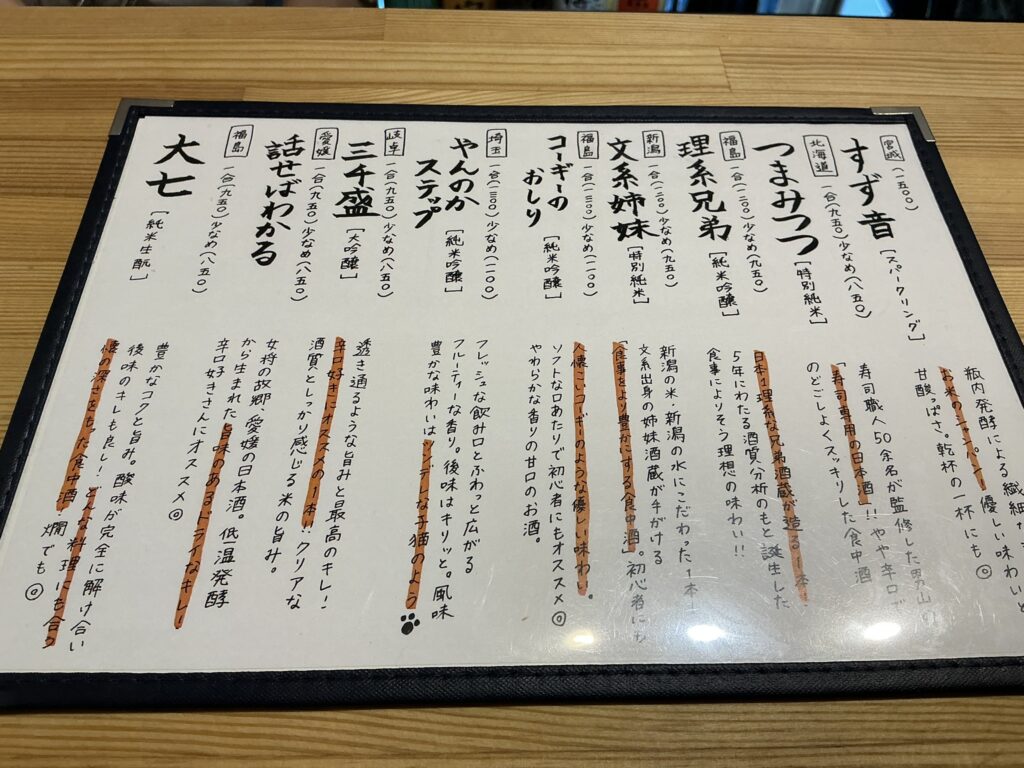 宮城
すず音
(一五〇〇)
[スパークリング]
瓶内発酵による繊細な
甘酸っぱさ。乾杯の一杯にも◎
お米のシャンパン!優しい味わいと
北海道
つまみつつ
一合(九五〇)少なめ(八五〇)
[特別純米]
寿司職人50余名が監修した男山の
「寿司専用の日本酒」!!やや辛口で
のどごしよくスッキリした食中酒
福島
理系兄弟
一合(一二〇〇)少なめ(九五〇)
[純米吟醸]
日本1理系な兄弟酒蔵が造る1本!
5年にわたる酒質分析のもと誕生した
食事によりそう理想の味わい!!
新潟
文系姉妹
一合(一二〇〇)少なめ(九五〇)
[特別純米]
新潟の米・新潟の水にこだわった1本!
文系出身の姉妹酒蔵が手がける
「食事をより豊かにする食中酒」。初心者にも
福島
コーギーの
おしり
一合(一三〇〇)少なめ(一一〇〇)
[純米吟醸]
人懐こいコーギーのような優しい味わい。
ソフトな口あたりで初心者にもオススメ◎
やわらかな香りの甘口のお酒。
埼玉
やんのか
ステップ
一合(一三〇〇)少なめ(一一〇〇)
[純米吟醸]
フレッシュな飲み口とふわっと広がる
フルーティーな香り。後味はキリッと。風味
豊かな味わいはツンデレな子猫のよう
岐阜
三千盛
一合(九五〇)少なめ(八五〇)
[大吟醸]
透き通るような旨みと最高のキレ!
辛口好きにオススメの1本!!クリアな
酒質としっかり感じる米の旨み。
愛媛
話せばわかる
一合(九五〇)少なめ(八五〇)
女将の故郷、愛媛の日本酒。低温発酵
から生まれた旨味のあるドライなキレ!
辛口好きさんにオススメ◎
福島
大七
一合(九五〇)少なめ(八五〇)
[純米生酛]
豊かなコクと旨み。酸味が完全に解け合い
後味のキレも良し!どんな料理にも合う
懐の深さをもった食中酒。燗でも◎